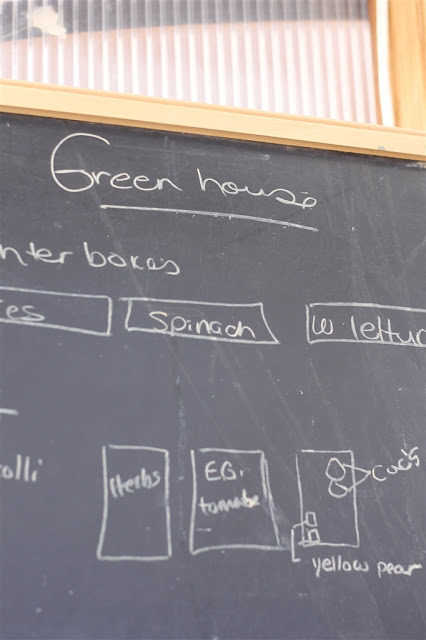 Green house
nter boxes
es
Spinach
w. lettu
olli
Herbs
E.G.
tomatoe
cuc's
yellow pear